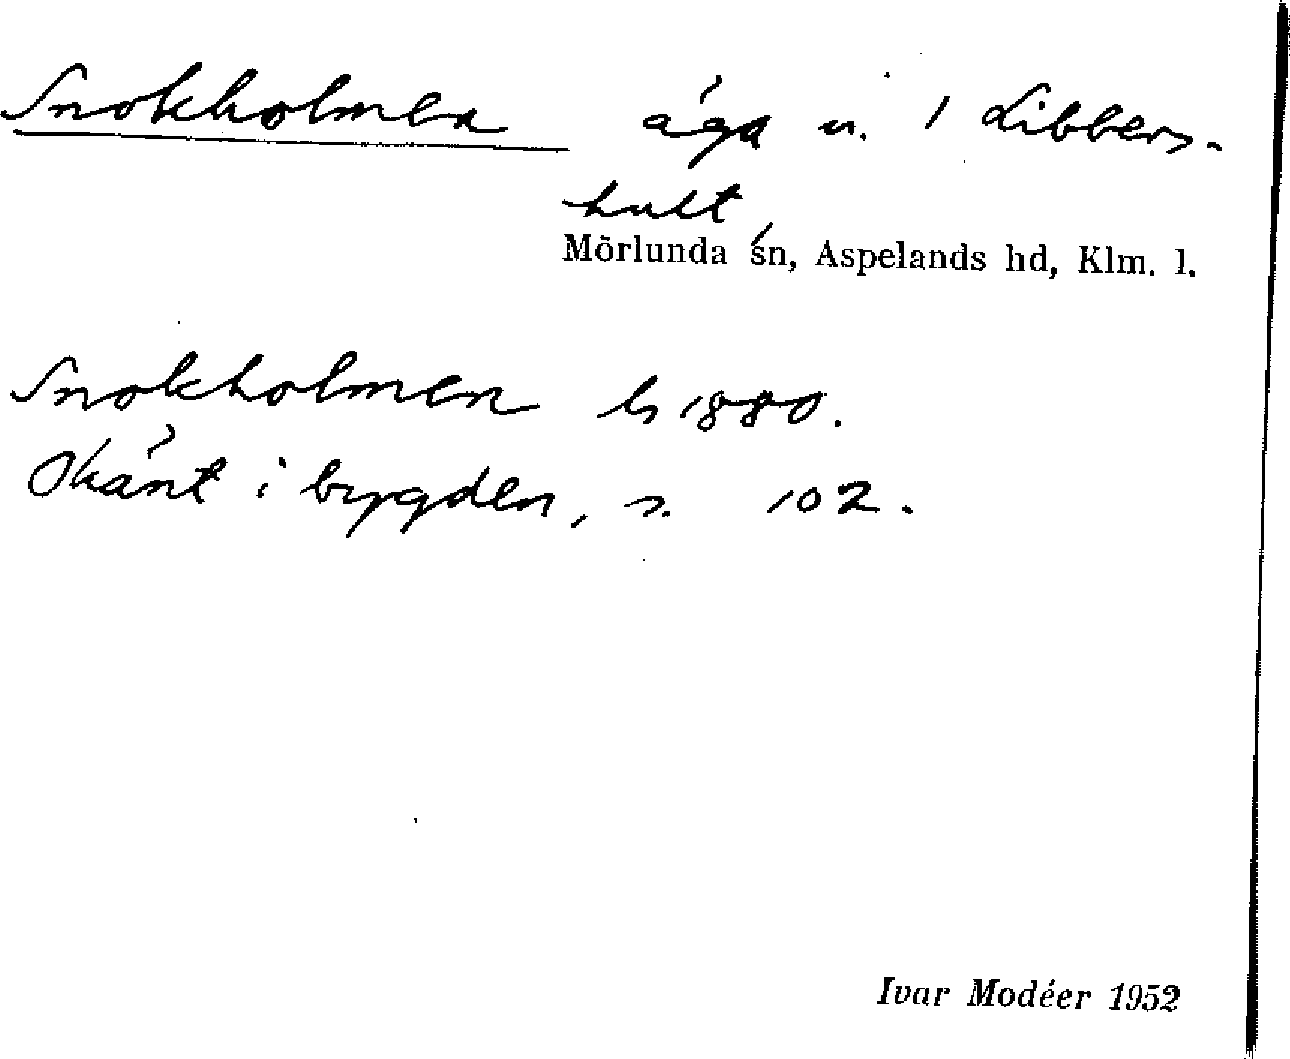 Snokholmen äga u. 1 Libbers-
hult,
Mörlunda sn, Aspelands hd, Klm. l.
Snokholmen ls 1880.
Okänt i bygden, s. 102.
Ivar Modéer 1952